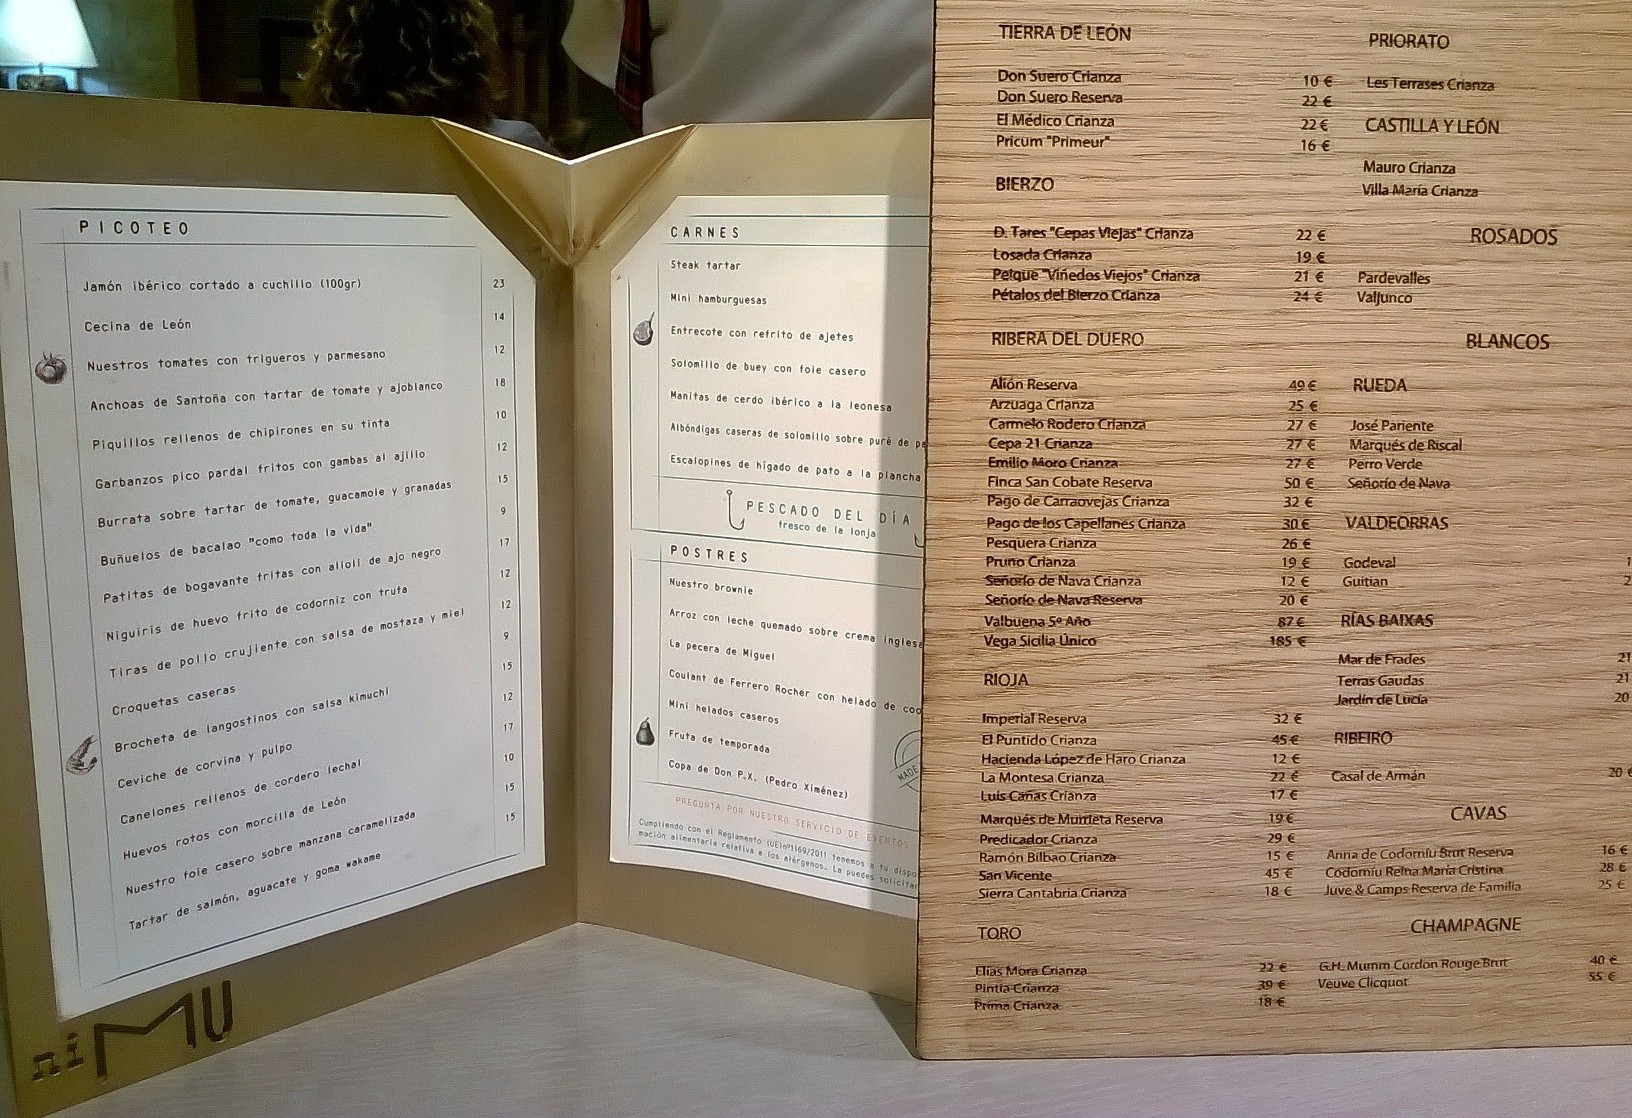 PICOTEO
Jamón ibérico cortado a cuchillo (100gr) 23
Cecina de León 14
Nuestros tomates con trigueros y parmesano 12
Anchoas de Santoña con tartar de tomate y ajoblanco 18
Piquillos rellenos de chipirones en su tinta 10
Garbanzos pico pardal fritos con gambas al ajillo 12
Burrata sobre tartar de tomate, guacamole y granadas 15
Buñuelos de bacalao "como toda la vida" 9
Patitas de bogavante fritas con alioli de ajo negro 17
Niguiris de huevo frito de codorniz con trufa 12
Tiras de pollo crujiente con salsa de mostaza y miel 12
Croquetas caseras 9
Brocheta de langostinos con salsa kimuchi 15
Ceviche de corvina y pulpo 12
Canelones rellenos de cordero lechal 17
Huevos rotos con morcilla de León 10
Nuestro foie casero sobre manzana caramelizada 15
Tartar de salmón, aguacate y goma wakame 15
niMU
CARNES
Steak tartar
Mini hamburguesas
Entrecote con refrito de ajetes
Solomillo de buey con foie casero
Manitas de cerdo ibérico a la leonesa
Albóndigas caseras de solomillo sobre puré de pa
Escalopines de hígado de pato a la plancha
PESCADO DEL DÍA
fresco de la lonja
POSTRES
Nuestro brownie
Arroz con leche quemado sobre crema inglesa
La pecera de Miguel
Coulant de Ferrero Rocher con helado de coo
Mini helados caseros
Fruta de temporada
Copa de Don P.X. (Pedro Ximénez)
MADE
PREGUNTA POR NUESTRO SERVICIO DE EVENTOS
Cumpliendo con el Reglamento (UE)nº1169/2011 tenemos a tu dispo
mación alimentaria relativa a los alérgenos. La puedes solicitar
TIERRA DE LEÓN
Don Suero Crianza 10 €
Don Suero Reserva 22 €
El Médico Crianza 22 €
Pricum "Primeur" 16 €
BIERZO
D. Tares "Cepas Viejas" Crianza 22 €
Losada Crianza 19 €
Peique "Viñedos Viejos" Crianza 21 €
Pétalos del Bierzo Crianza 24 €
RIBERA DEL DUERO
Alión Reserva 49 €
Arzuaga Crianza 25 €
Carmelo Rodero Crianza 27 €
Cepa 21 Crianza 27 €
Emilio Moro Crianza 27 €
Finca San Cobate Reserva 50 €
Pago de Carraovejas Crianza 32 €
Pago de los Capellanes Crianza 30 €
Pesquera Crianza 26 €
Pruno Crianza 19 €
Señorío de Nava Crianza 12 €
Señorío de Nava Reserva 20 €
Valbuena 5º Año 87 €
Vega Sicilia Único 185 €
RIOJA
Imperial Reserva 32 €
El Puntido Crianza 45 €
Hacienda López de Haro Crianza 12 €
La Montesa Crianza 22 €
Luis Cañas Crianza 17 €
Marqués de Murrieta Reserva 19 €
Predicador Crianza 29 €
Ramón Bilbao Crianza 15 €
San Vicente 45 €
Sierra Cantabria Crianza 18 €
TORO
Elías Mora Crianza 22 €
Pintia Crianza 39 €
Prima Crianza 18 €
PRIORATO
Les Terrases Crianza
CASTILLA Y LEÓN
Mauro Crianza
Villa María Crianza
ROSADOS
Pardevalles
Valjunco
BLANCOS
RUEDA
José Pariente
Marqués de Riscal
Perro Verde
Señorío de Nava
VALDEORRAS
Godeval 1
Guitian 2
RÍAS BAIXAS
Mar de Frades 21
Terras Gaudas 21
Jardín de Lucía 20
RIBEIRO
Casal de Armán 20 €
CAVAS
Anna de Codorníu Brut Reserva 16 €
Codorníu Reina María Cristina 28 €
Juve & Camps Reserva de Familia 25 €
CHAMPAGNE
G.H. Mumm Cordon Rouge Brut 40 €
Veuve Clicquot 55 €